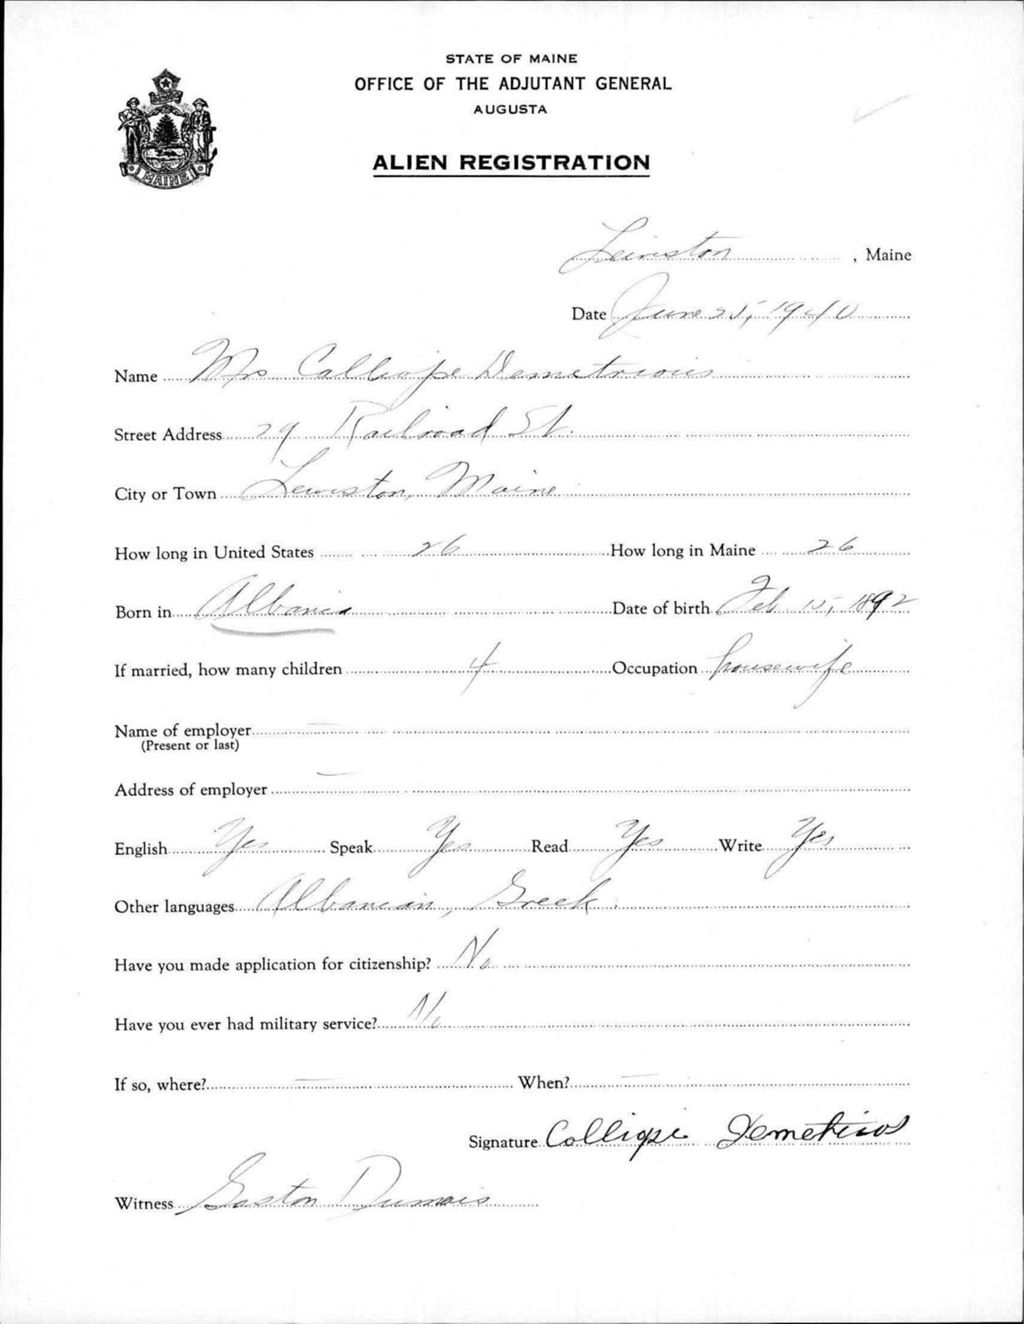 STATE OF MAINE
OFFICE OF THE ADJUTANT GENERAL
AUGUSTA
MAINE
ALIEN REGISTRATION
Lewiston, Maine
Date June 25, 1940
Name Mrs Calliope Demetrious
Street Address 29 Railroad St.
City or Town Lewiston, Maine
How long in United States 26 How long in Maine 26
Born in Albania Date of birth Feb 15, 1892
If married, how many children 4 Occupation housewife
Name of employer
(Present or last)
Address of employer
English Yes Speak Yes Read Yes Write Yes
Other languages Albanian, Greek.
Have you made application for citizenship? No
Have you ever had military service? No
If so, where? When?
Signature Calliope Demetrios
Witness Gaston Dumais